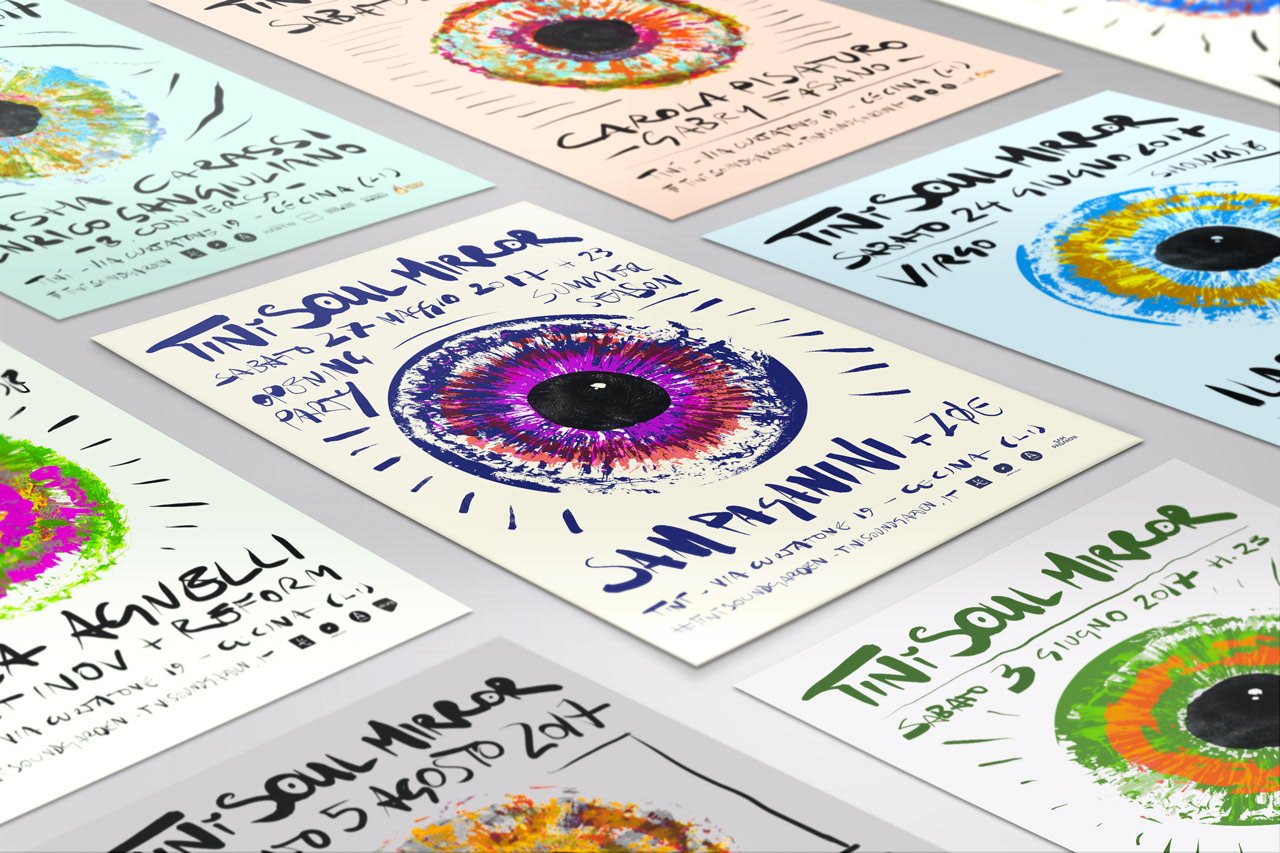 SABATO
CAROLA PISATURO
GABRY FASANO
TINI - VIA CURTATONE 19 - CECINA (LI)
#TINISOUNDGARDEN - TINISOUNDGARDEN.IT
CARASSI
ENRICO SANGIULIANO
TINI - VIA CURTATONE 19 - CECINA (LI)
#TINISOUNDGARDEN
TINI SOUL MIRROR
SABATO 24 GIUGNO 2017
VIRGO
TINI SOUL MIRROR
SABATO 27 MAGGIO 2017 H 23
OPENING PARTY
SUMMER SEASON
SAM PAGANINI + ZØE
TINI - VIA CURTATONE 19 - CECINA (LI)
#TINISOUNDGARDEN - TINISOUNDGARDEN.IT
AGNELLI
+ REFORM
VIA CURTATONE 19 - CECINA (LI)
SOUNDGARDEN - TINISOUNDGARDEN.IT
TINI SOUL MIRROR
SABATO 3 GIUGNO 2017 H. 23
TINI SOUL MIRROR
5 AGOSTO 2017